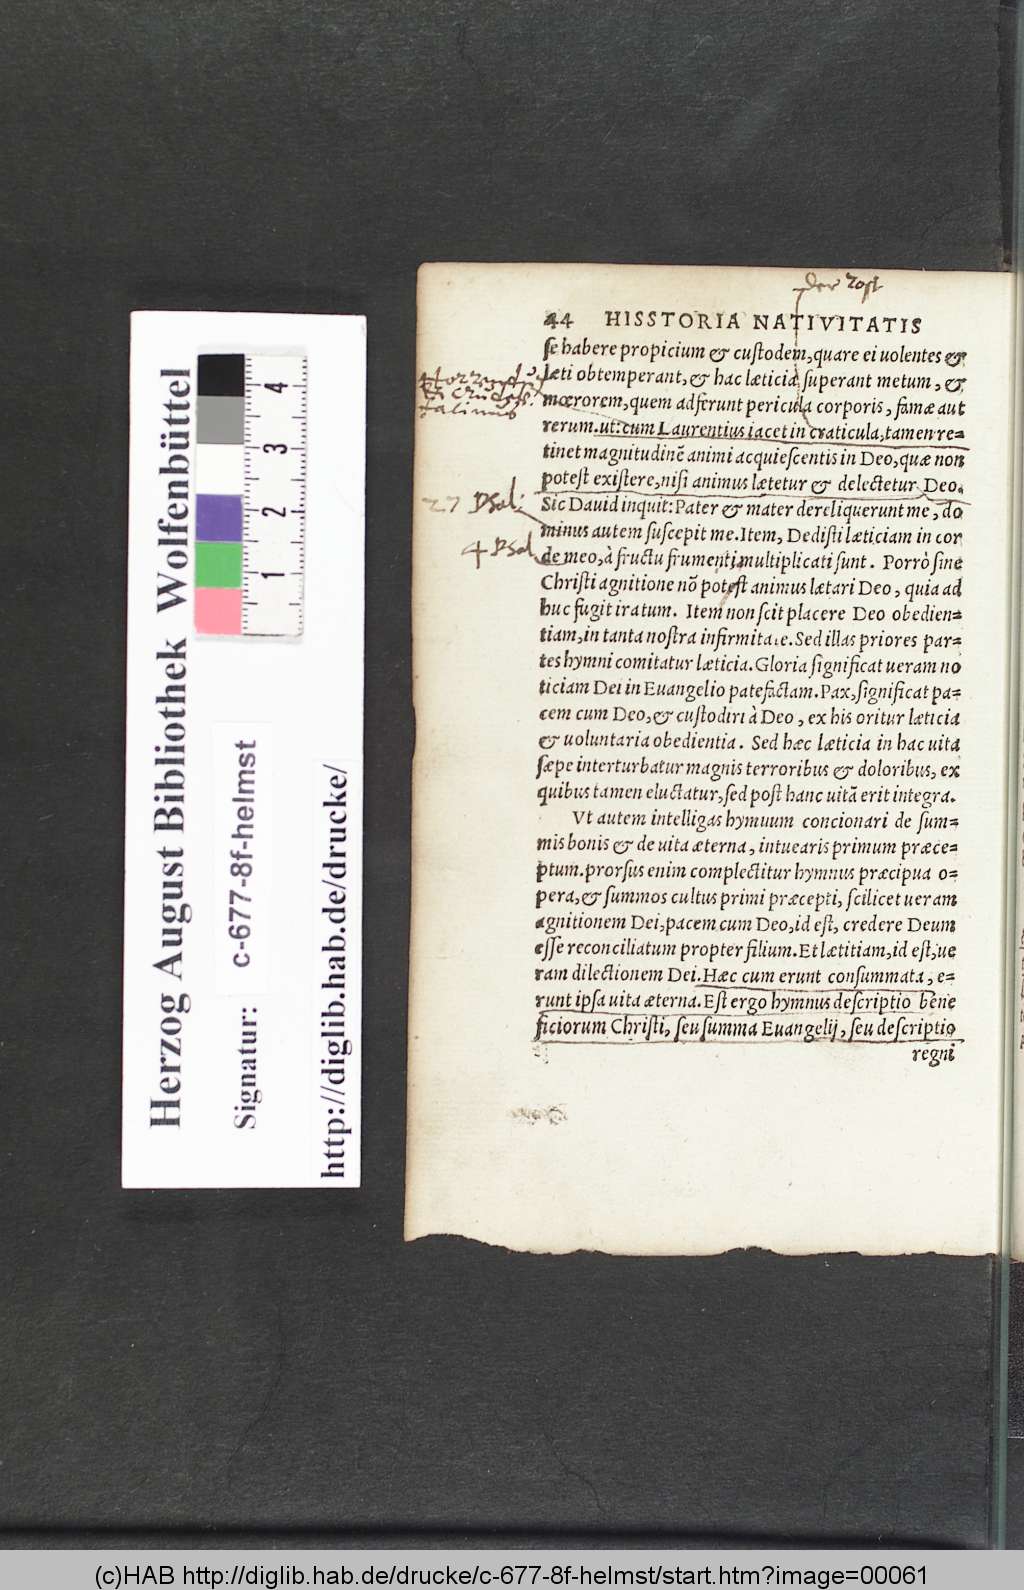 der Rost
44 HISSTORIA NATIVITATIS
ſe habere propicium & cuſtodem, quare ei uolentes &
læti obtemperant, & hac læticia ſuperant metum, &
mœrorem, quem adferunt pericula corporis, famæ aut
rerum. ut: cum Laurentius iacet in craticula, tamen re=
tinet magnitudinē animi acquieſcentis in Deo, quæ non
poteſt exiſtere, niſi animus lætetur & delectetur Deo.
27 Psal:
Sic Dauid inquit: Pater & mater dereliquerunt me, do
minus autem ſuſcepit me. Item, Dediſti læticiam in cor
4 Psal
de meo, à fructu frumenti multiplicati ſunt. Porrò ſine
Chriſti agnitione nõ poteſt animus lætari Deo, quia ad
huc fugit iratum. Item non ſcit placere Deo obedien=
tiam, in tanta noſtra infirmitate. Sed illas priores par=
tes hymni comitatur læticia. Gloria ſignificat ueram no
ticiam Dei in Euangelio patefactam. Pax, ſignificat pa=
cem cum Deo, & cuſtodiri à Deo, ex his oritur læticia
& uoluntaria obedientia. Sed hæc læticia in hac uita
ſæpe interturbatur magnis terroribus & doloribus, ex
quibus tamen eluctatur, ſed poſt hanc uitā erit integra.
Vt autem intelligas hymuum concionari de ſum=
mis bonis & de uita æterna, intuearis primum præce=
ptum. prorſus enim complectitur hymnus præcipua o=
pera, & ſummos cultus primi præcepti, ſcilicet ueram
agnitionem Dei, pacem cum Deo, id eſt, credere Deum
eſſe reconciliatum propter filium. Et lætitiam, id eſt, ue
ram dilectionem Dei. Hæc cum erunt conſummata, e=
runt ipſa uita æterna. Eſt ergo hymnus deſcriptio bene
ficiorum Chriſti, ſeu ſumma Euangelij, ſeu deſcriptio
regni
Herzog August Bibliothek Wolfenbüttel
Signatur: c-677-8f-helmst
http://diglib.hab.de/drucke/
1 2 3 4
(c)HAB http://diglib.hab.de/drucke/c-677-8f-helmst/start.htm?image=00061